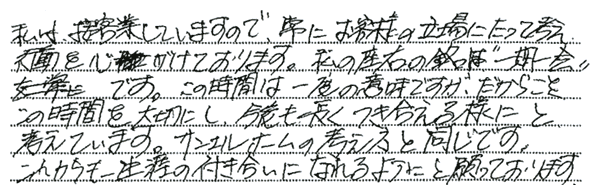 私は、接客業していますので、常にお客様の立場にたって考え
を心がけております。私の座右の銘は"一期一会"
です。この時間は一度の意味ですが、だからこそ
この時間を大切にし、今後も長くつき合える様にと
考えています。サンエルホームの考え方と同じです。
これからも一生涯の付き合いになれるようにと願っております。